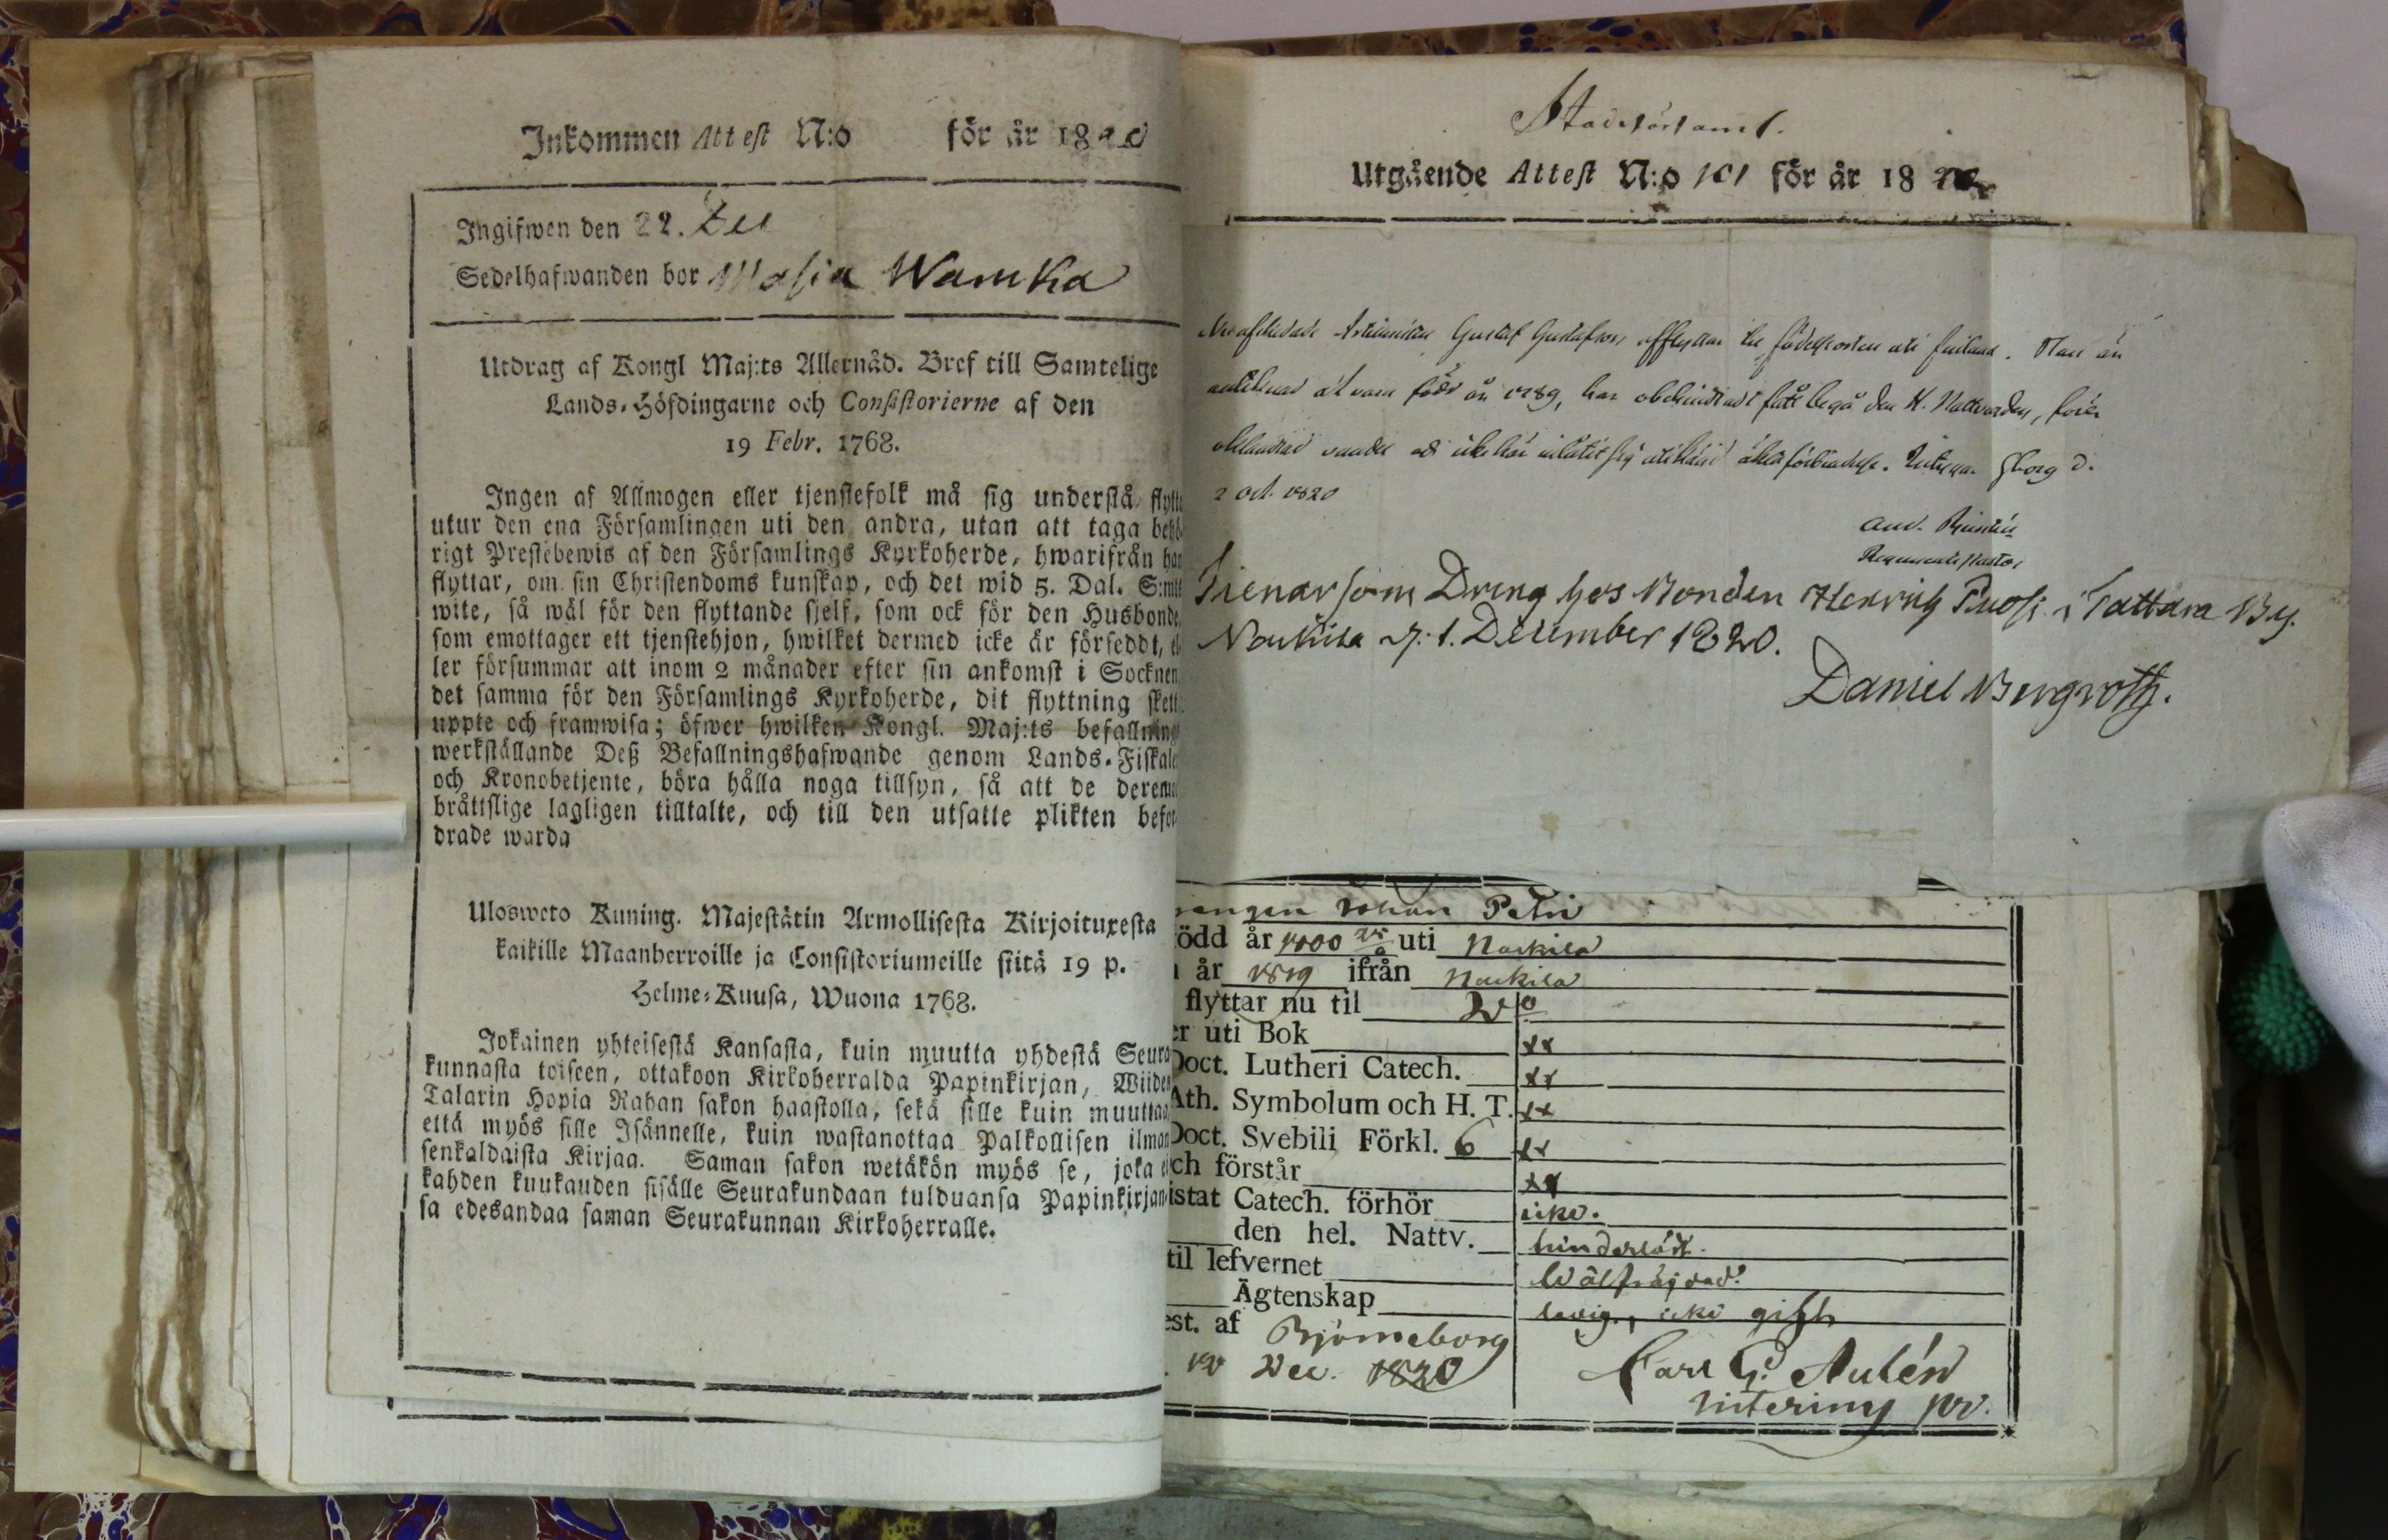 Inkommen Attest N:o för år 1820
Ingifwen den 22. Dec
Sedelhafwanden bor Masia Wamka
Utdrag af Kongl Maj:ts Allernåd. Bref till Samtelige
Lands-Höfdingarne och Consistorierne af den
19 Febr. 1768.
Ingen af Allmogen eller tjenstefolk må sig understå flytta
utur den ena Församlingen uti den andra, utan att taga behö-
rigt Prestebewis af den Församlings Kyrkoherde, hwarifrån han
flyttar, om sin Christendoms kunskap, och det wid 5. Dal. S:mts
wite, så wäl för den flyttande sjelf, som ock för den Husbonde,
som emottager ett tjenstehjon, hwilket dermed icke är försedt, el-
ler försummar att inom 2 månader efter sin ankomst i Socknen
det samma för den Församlings Kyrkoherde, dit flyttning skett
uppte och framwisa; öfwer hwilken Kongl. Maj:ts befallning
werkställande Deß Befallningshafwande genom Lands-Fiskale
och Kronobetjente, böra hålla noga tillsyn, så att de deremo
bråttslige lagligen tilltalte, och till den utsatte plikten befor-
drade warda
Ulosweto Kuning. Majestätin Armollisesta Kirjoituxesta
kaikille Maanherroille ja Consistoriumeille siitä 19 p.
Helme-Kuusa, Wuona 1768.
Jokainen yhteisestä Kansasta, kuin muutta yhdestä Seura
kunnasta toiseen, ottakoon Kirkoherralda Papinkirjan, Wiiden
Talarin Hopia Rahan sakon haastolla, sekä sille kuin muuttaa
että myös sille Isännelle, kuin wastanottaa Palkollisen ilman
senkaldaista Kirjaa. Saman sakon wetäkön myös se, joka ei
kahden kuukauden sisälle Seurakundaan tulduansa Papinkirjan-
sa edesandaa saman Seurakunnan Kirkoherralle.
Utgående Attest N:o 101 för år 18
Gustaf Gustafson afflyttar till födelseorten uti finland. Han är
att vara född år 1789, har obehindradt fått begå den H. Nattvarden, fört
2 oct. 1820
Regements Pastor
Tienar som Dreng hos Bonden Henrich Ruosi i Tattara By.
Naukila d. 1. December 1820.
Daniel Bergroth.
Johan Petri
född år 1800 uti Naukila
år 1819 ifrån Naukila
flyttar nu til Do
er uti Bok xx
Doct. Lutheri Catech. xx
Ath. Symbolum och H. T. xx
Doct. Svebili Förkl. 6 xx
ch förstår xx
istat Catech. förhör icke.
den hel. Nattv. hinderlöst.
til lefvernet Wälfräjdad.
Ägtenskap ledig, icke gift
est. af Björneborg
12 Dec. 1820
Carl G. Aulén